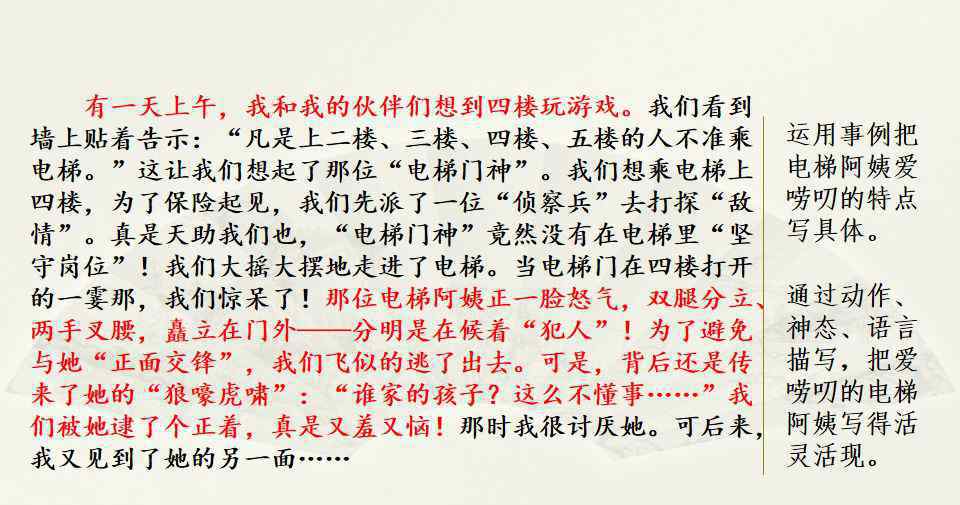 有一天上午，我和我的伙伴们想到四楼玩游戏。我们看到
墙上贴着告示：“凡是上二楼、三楼、四楼、五楼的人不准乘
电梯。”这让我们想起了那位“电梯门神”。我们想乘电梯上
四楼，为了保险起见，我们先派了一位“侦察兵”去打探“敌
情”。真是天助我们也，“电梯门神”竟然没有在电梯里“坚
守岗位”！我们大摇大摆地走进了电梯。当电梯门在四楼打开
的一霎那，我们惊呆了！那位电梯阿姨正一脸怒气，双腿分立、
两手叉腰，矗立在门外——分明是在候着“犯人”！为了避免
与她“正面交锋”，我们飞似的逃了出去。可是，背后还是传
来了她的“狼嚎虎啸”：“谁家的孩子？这么不懂事……”我
们被她逮了个正着，真是又羞又恼！那时我很讨厌她。可后来，
我又见到了她的另一面……
运用事例把
电梯阿姨爱
唠叨的特点
写具体。
通过动作、
神态、语言
描写，把爱
唠叨的电梯
阿姨写得活
灵活现。